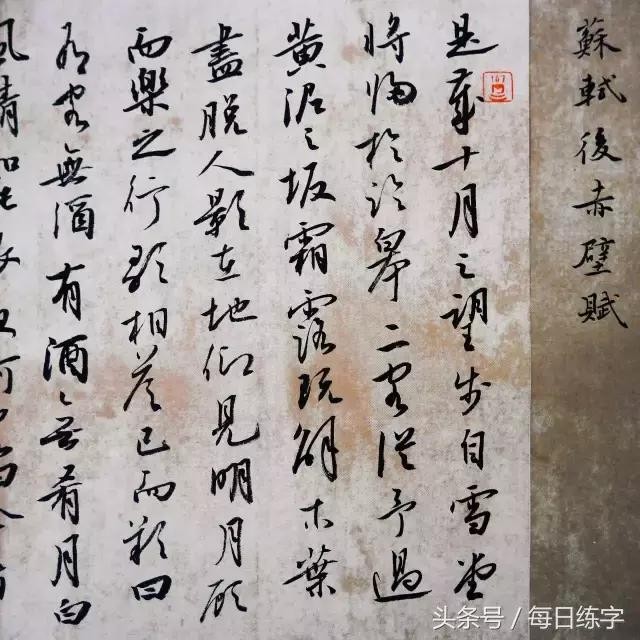 蘇軾後赤壁賦
是歲十月之望步自雪堂
將歸於臨皋二客從予過
黄泥之坂霜露既降木葉
盡脫人影在地仰見明月顧
而樂之行歌相答已而歎曰
有客無酒有酒〻无肴月白
風清如此
头条号 / 每日练字